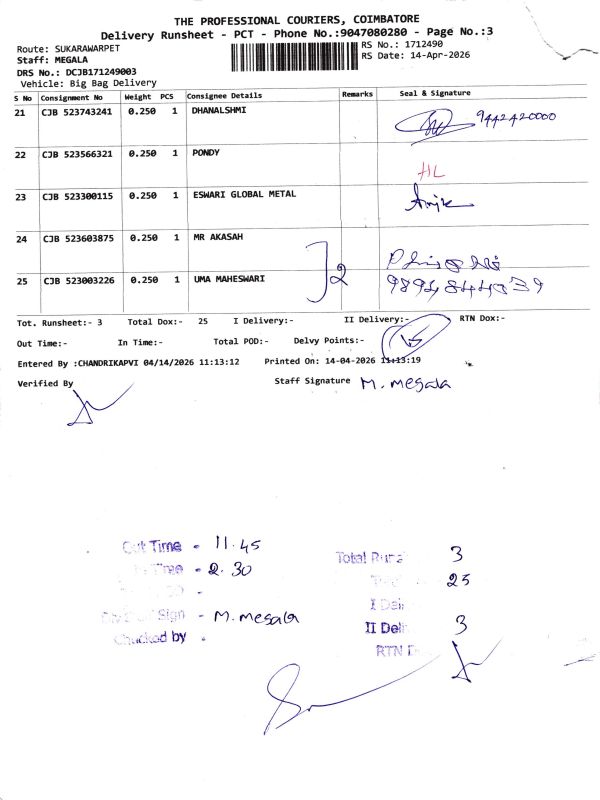 THE PROFESSIONAL COURIERS, COIMBATORE
Delivery Runsheet - PCT - Phone No.:9047080280 - Page No.:3
Route: SUKARAWARPET
RS No.: 1712490
Staff: MEGALA
RS Date: 14-Apr-2026
DRS No.: DCJB171249003
Vehicle: Big Bag Delivery
S No Consignment No Weight PCS Consignee Details Remarks Seal & Signature
21 CJB 523743241 0.250 1 DHANALSHMI 9442420000
22 CJB 523566321 0.250 1 PONDY HL
23 CJB 523300115 0.250 1 ESWARI GLOBAL METAL
24 CJB 523603875 0.250 1 MR AKASAH
25 CJB 523003226 0.250 1 UMA MAHESWARI 2
Tot. Runsheet:- 3 Total Dox:- 25 I Delivery:- II Delivery:- RTN Dox:-
Out Time:- In Time:- Total POD:- Delvy Points:-
Entered By :CHANDRIKAPVI 04/14/2026 11:13:12 Printed On: 14-04-2026 11:13:19
Verified By Staff Signature M. megala
Out Time - 11.45
Time - 2.30
Sign - M. megala
Checked by -
Total Runs 3
25
I Deli
II Deli 3
RTN D